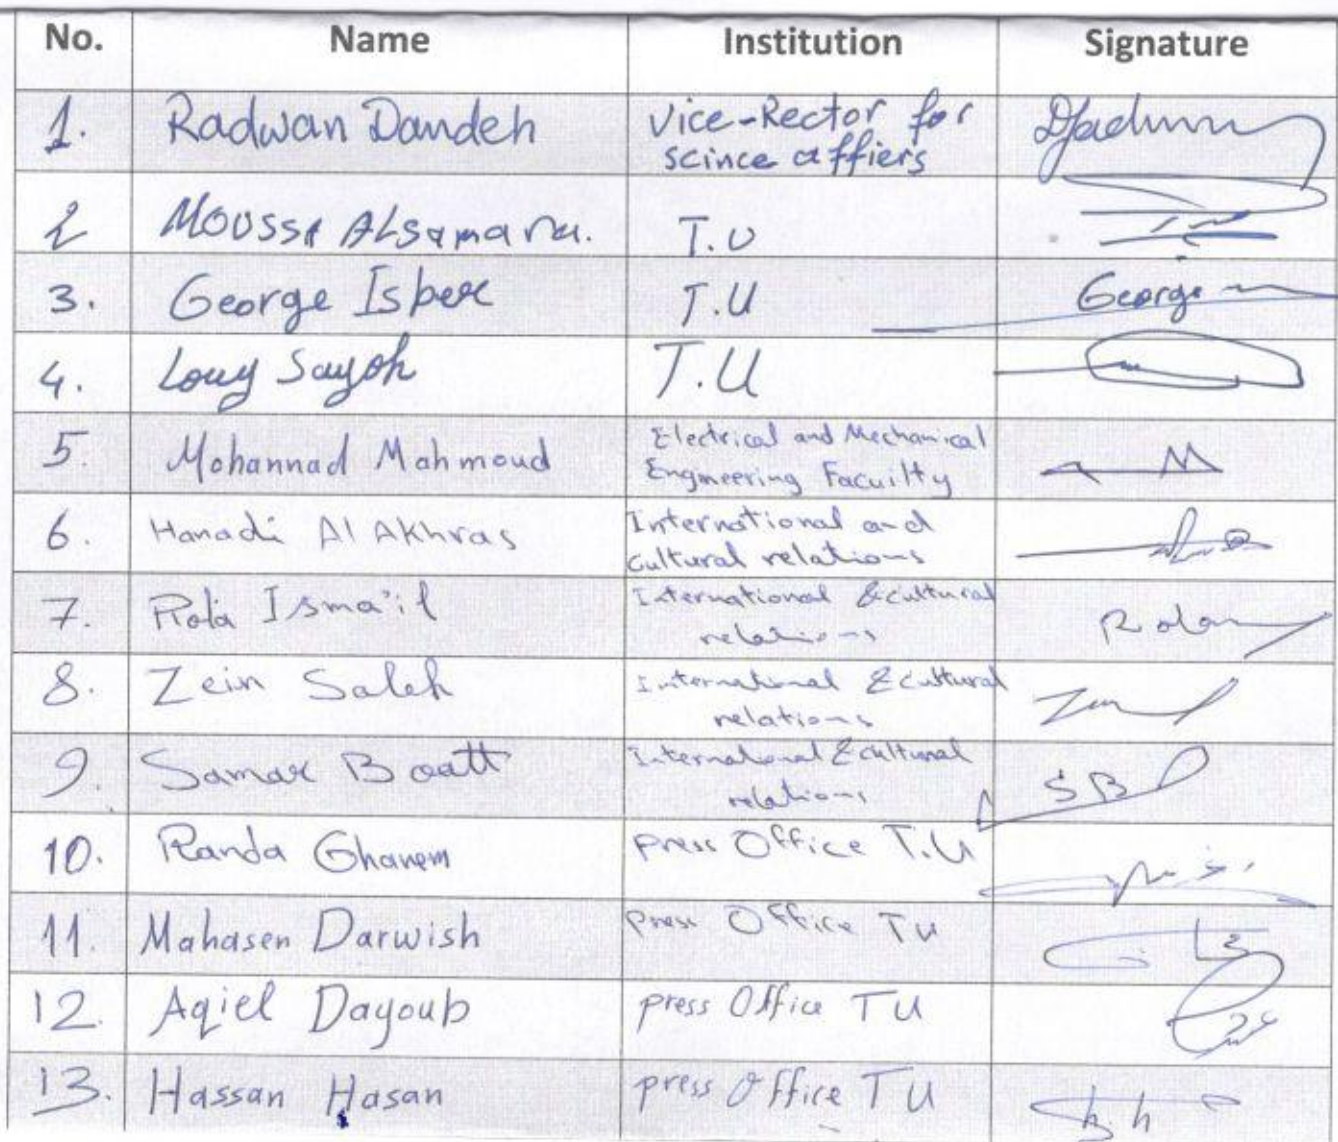 No. Name Institution Signature
1. Radwan Dandeh vice-Rector for
scince affiers
2 Moussa ALsamara. T.U
3. George Isber T.U George
4. Louy Sayoh T.U
5. Mohannad Mahmoud Electrical and Mechanical
Engineering Facuilty M
6. Hanadi Al Akhras International and
cultural relations
7. Rola Isma'il International & cultural
relations Rola
8. Zein Saleh International & cultural
relations
9. Samar Boatt International & cultural
relations SB
10. Randa Ghanem press Office T.U
11. Mahasen Darwish press Office TU
12. Aqiel Dayoub press Office TU
13. Hassan Hasan press Office TU